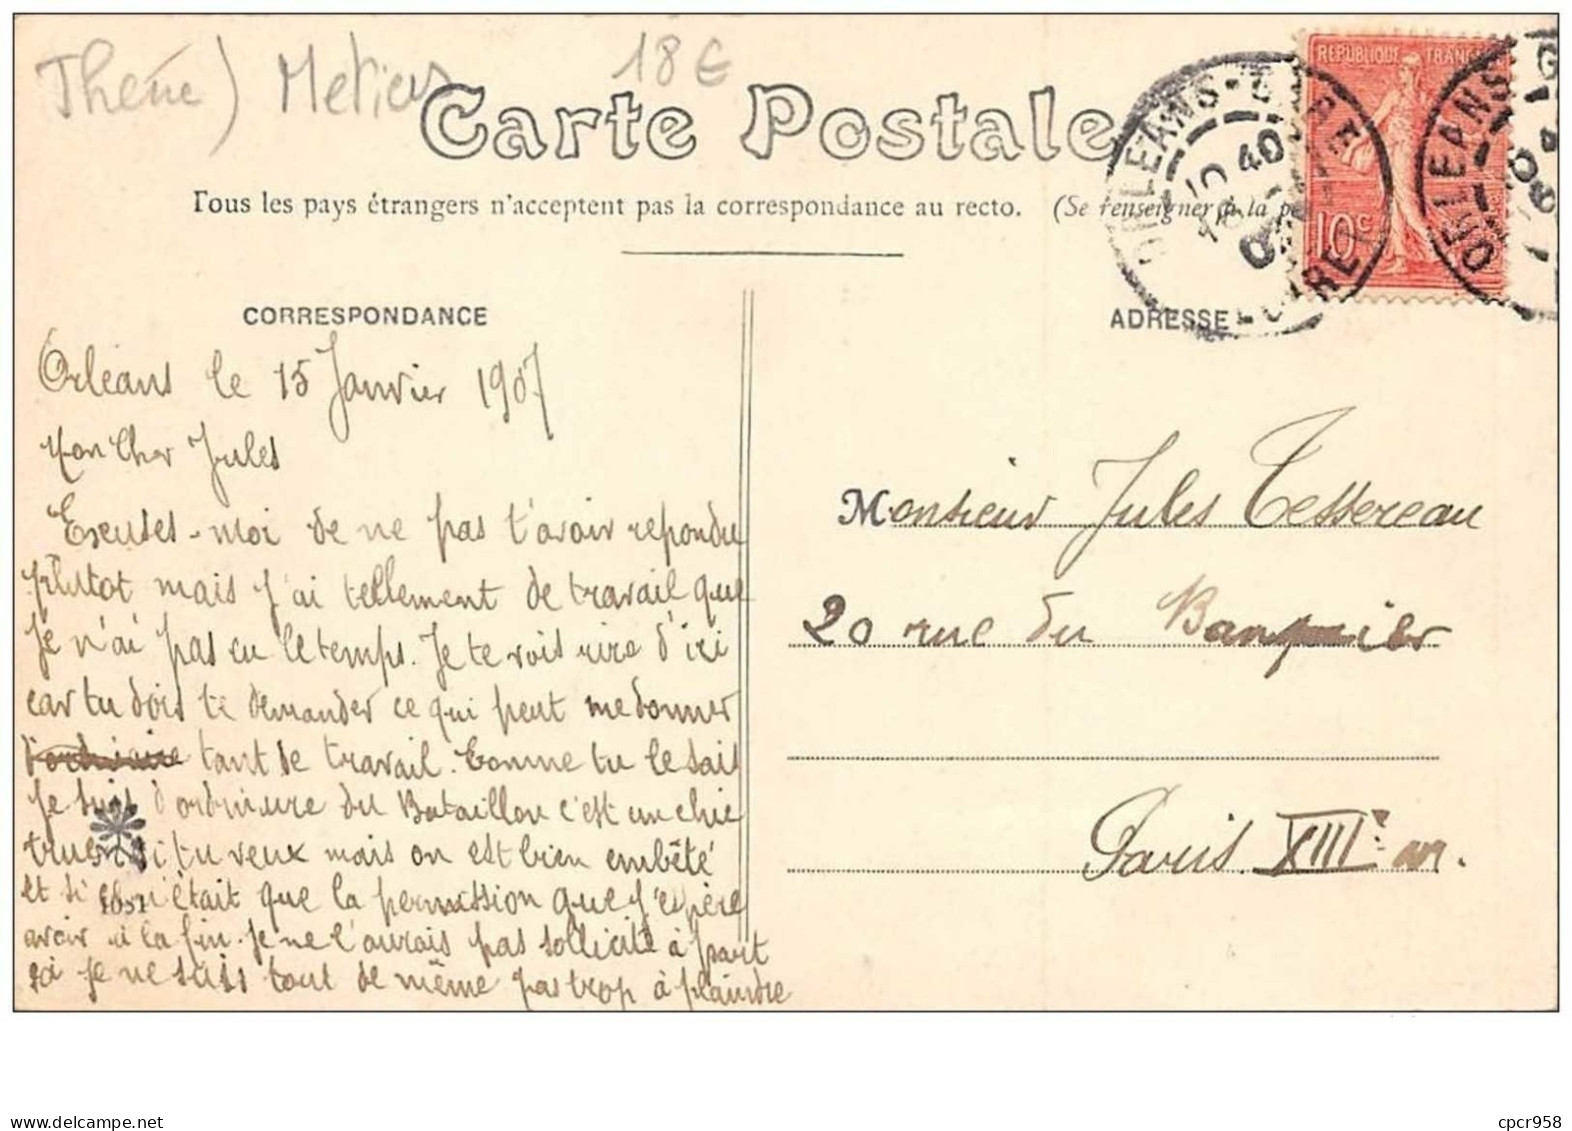 Thème) Metiers
18€
Carte Postale
Tous les pays étrangers n'acceptent pas la correspondance au recto. (Se renseigner à la p
REPUBLIQUE FRANÇ
10c
ORLEANS-GARE
LOIRET
10 40
ORLEANS
CORRESPONDANCE
ADRESSE
Orléans le 15 Janvier 1907
Mon Cher Jules
Excuses-moi de ne pas t'avoir repondu
plutot mais j'ai tellement de travail que
je n'ai pas eu le temps. Je te vois rire d'ici
car tu dois te demander ce qui peut me donner
tant de travail. Comme tu le sais
je suis d'ordinaire du Bataillon c'est un chic
truc si tu veux mais on est bien embêté
et si ce n'était que la permission que j'espère
avoir à la fin je ne l'aurais pas sollicité à part
ça je ne suis tout de même pas trop à plaindre
1051
Monsieur Jules Tessereau
20 rue du Banquier
Paris XIIIe arr.
delcampe.net
cpcr958